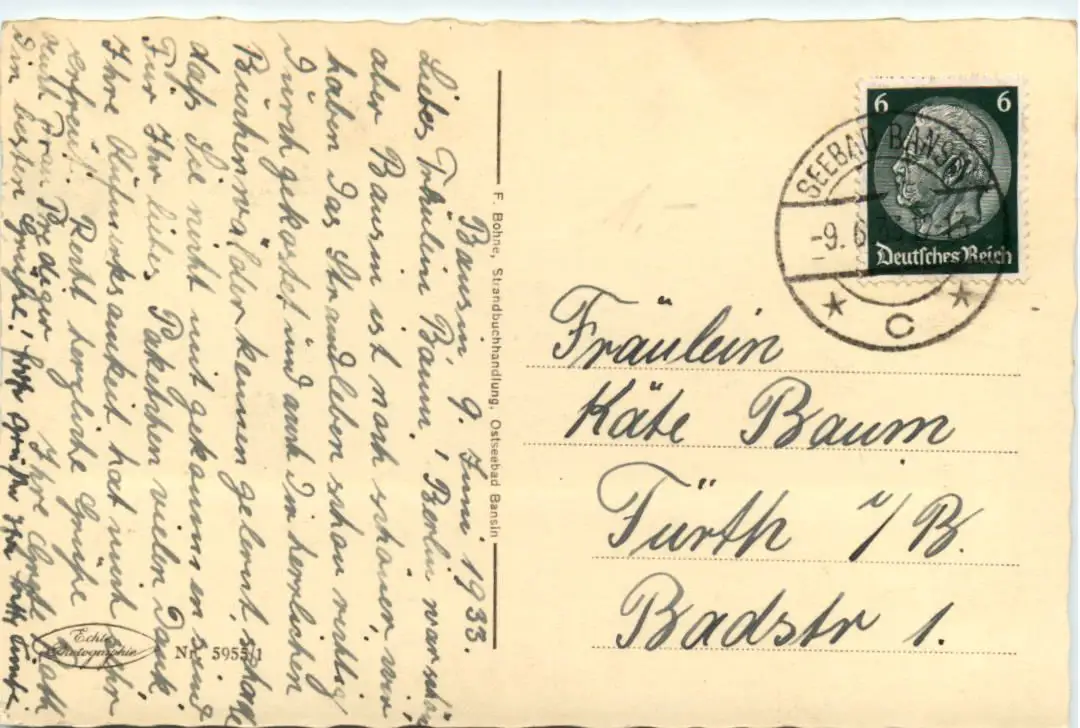 Bansin 9. Juni 1933.
Liebes Fräulein Baum, Berlin war schön
aber Bansin ist noch schöner, wir
haben das Strandleben schon richtig
durchgekostet und auch die herrlichen
Buchenwälder kennen gelernt, schade
daß Sie nicht mitgekommen sind
Für Ihr liebes Paketchen vielen Dank
Ihre Aufmerksamkeit hat mich sehr
erfreut. Recht herzliche Grüße
auch Frau Prediger Ihre Grete
die besten Grüße!
F. Bohne, Strandbuchhandlung, Ostseebad Bansin
Echte Photographie
Nr. 5955/1
6 6
Deutsches Reich
SEEBAD BANSIN
-9. 6. 33
C
Fräulein
Käte Baum
Fürth i/B.
Badstr 1.